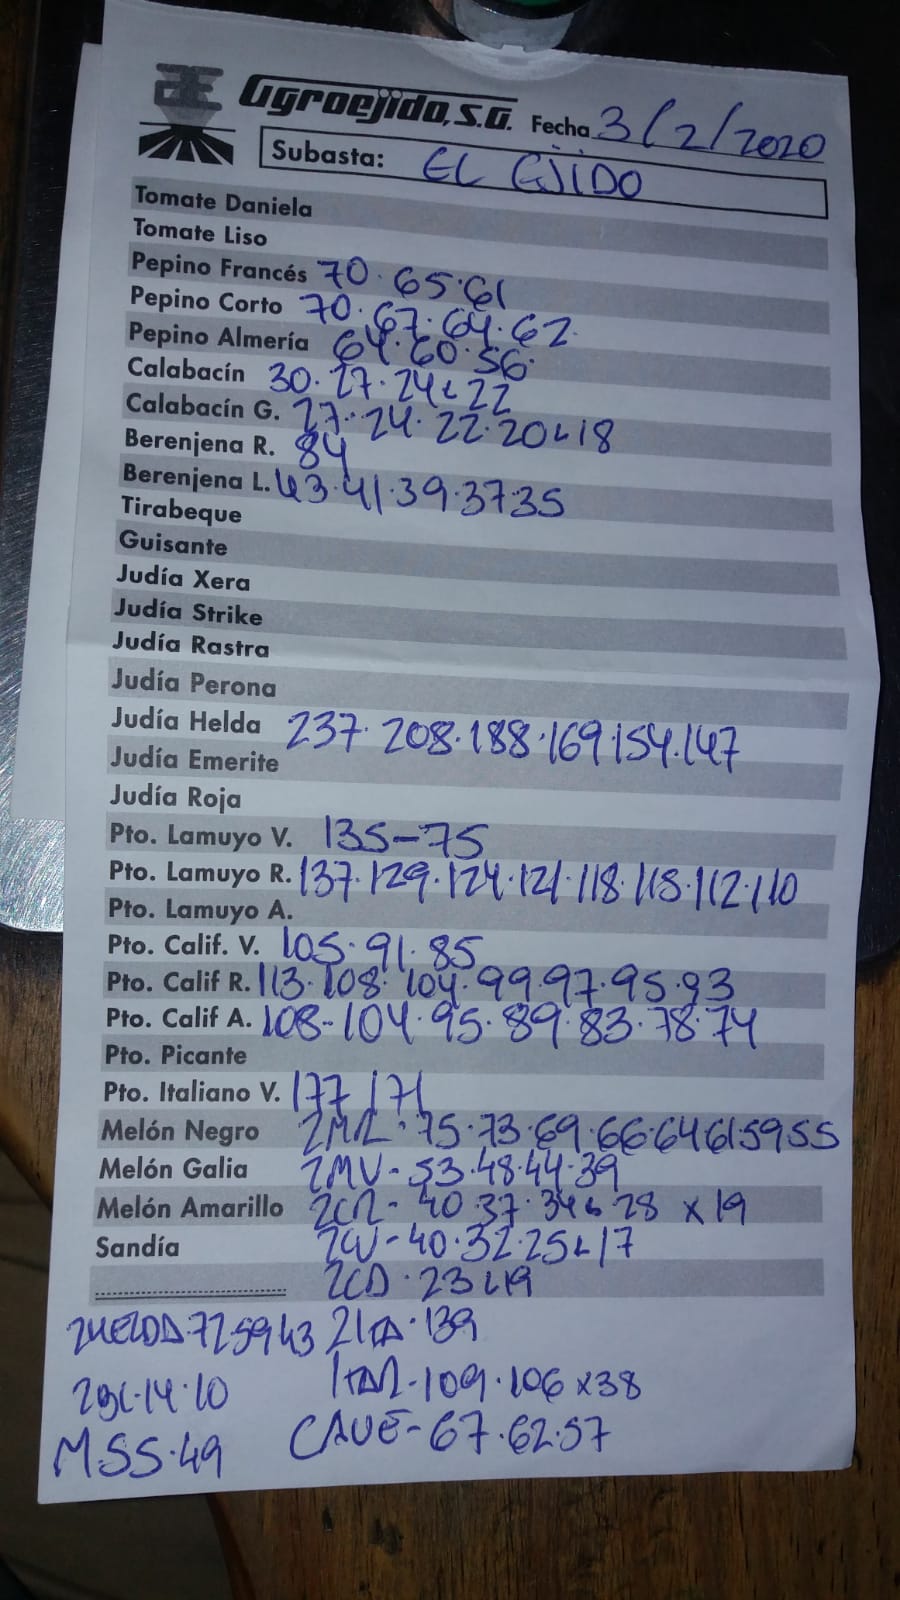 Agroejido, S.A. Fecha 3/2/2020
Subasta: EL EJIDO
Tomate Daniela
Tomate Liso
Pepino Francés 70.65.61
Pepino Corto 70.67.64.62.
Pepino Almería 64.60.56.
Calabacín 30.27.24L22
Calabacín G. 27.24.22.20L18
Berenjena R. 84
Berenjena L. 43.41.39.37.35
Tirabeque
Guisante
Judía Xera
Judía Strike
Judía Rastra
Judía Perona
Judía Helda 237.208.188.169.154.147
Judía Emerite
Judía Roja
Pto. Lamuyo V. 135-75
Pto. Lamuyo R. 137.129.124.121.118.115.112.110
Pto. Lamuyo A.
Pto. Calif. V. 105.91.85
Pto. Calif R. 113.108.104.99.97.95.93
Pto. Calif A. 108-104.95.89.83.78.74
Pto. Picante
Pto. Italiano V. 177 171
Melón Negro 2MR.75.73.69.66.64615955
Melón Galia 2MV-53.48.44.39
Melón Amarillo 2CR-40.37.34L28 x19
Sandía 2CV-40.32.25L17
2CA.23L19
2HELDA 725943 2ITA.139
14.10 ITAR-109.106x38
MSS.49 CAVE-67.62.57